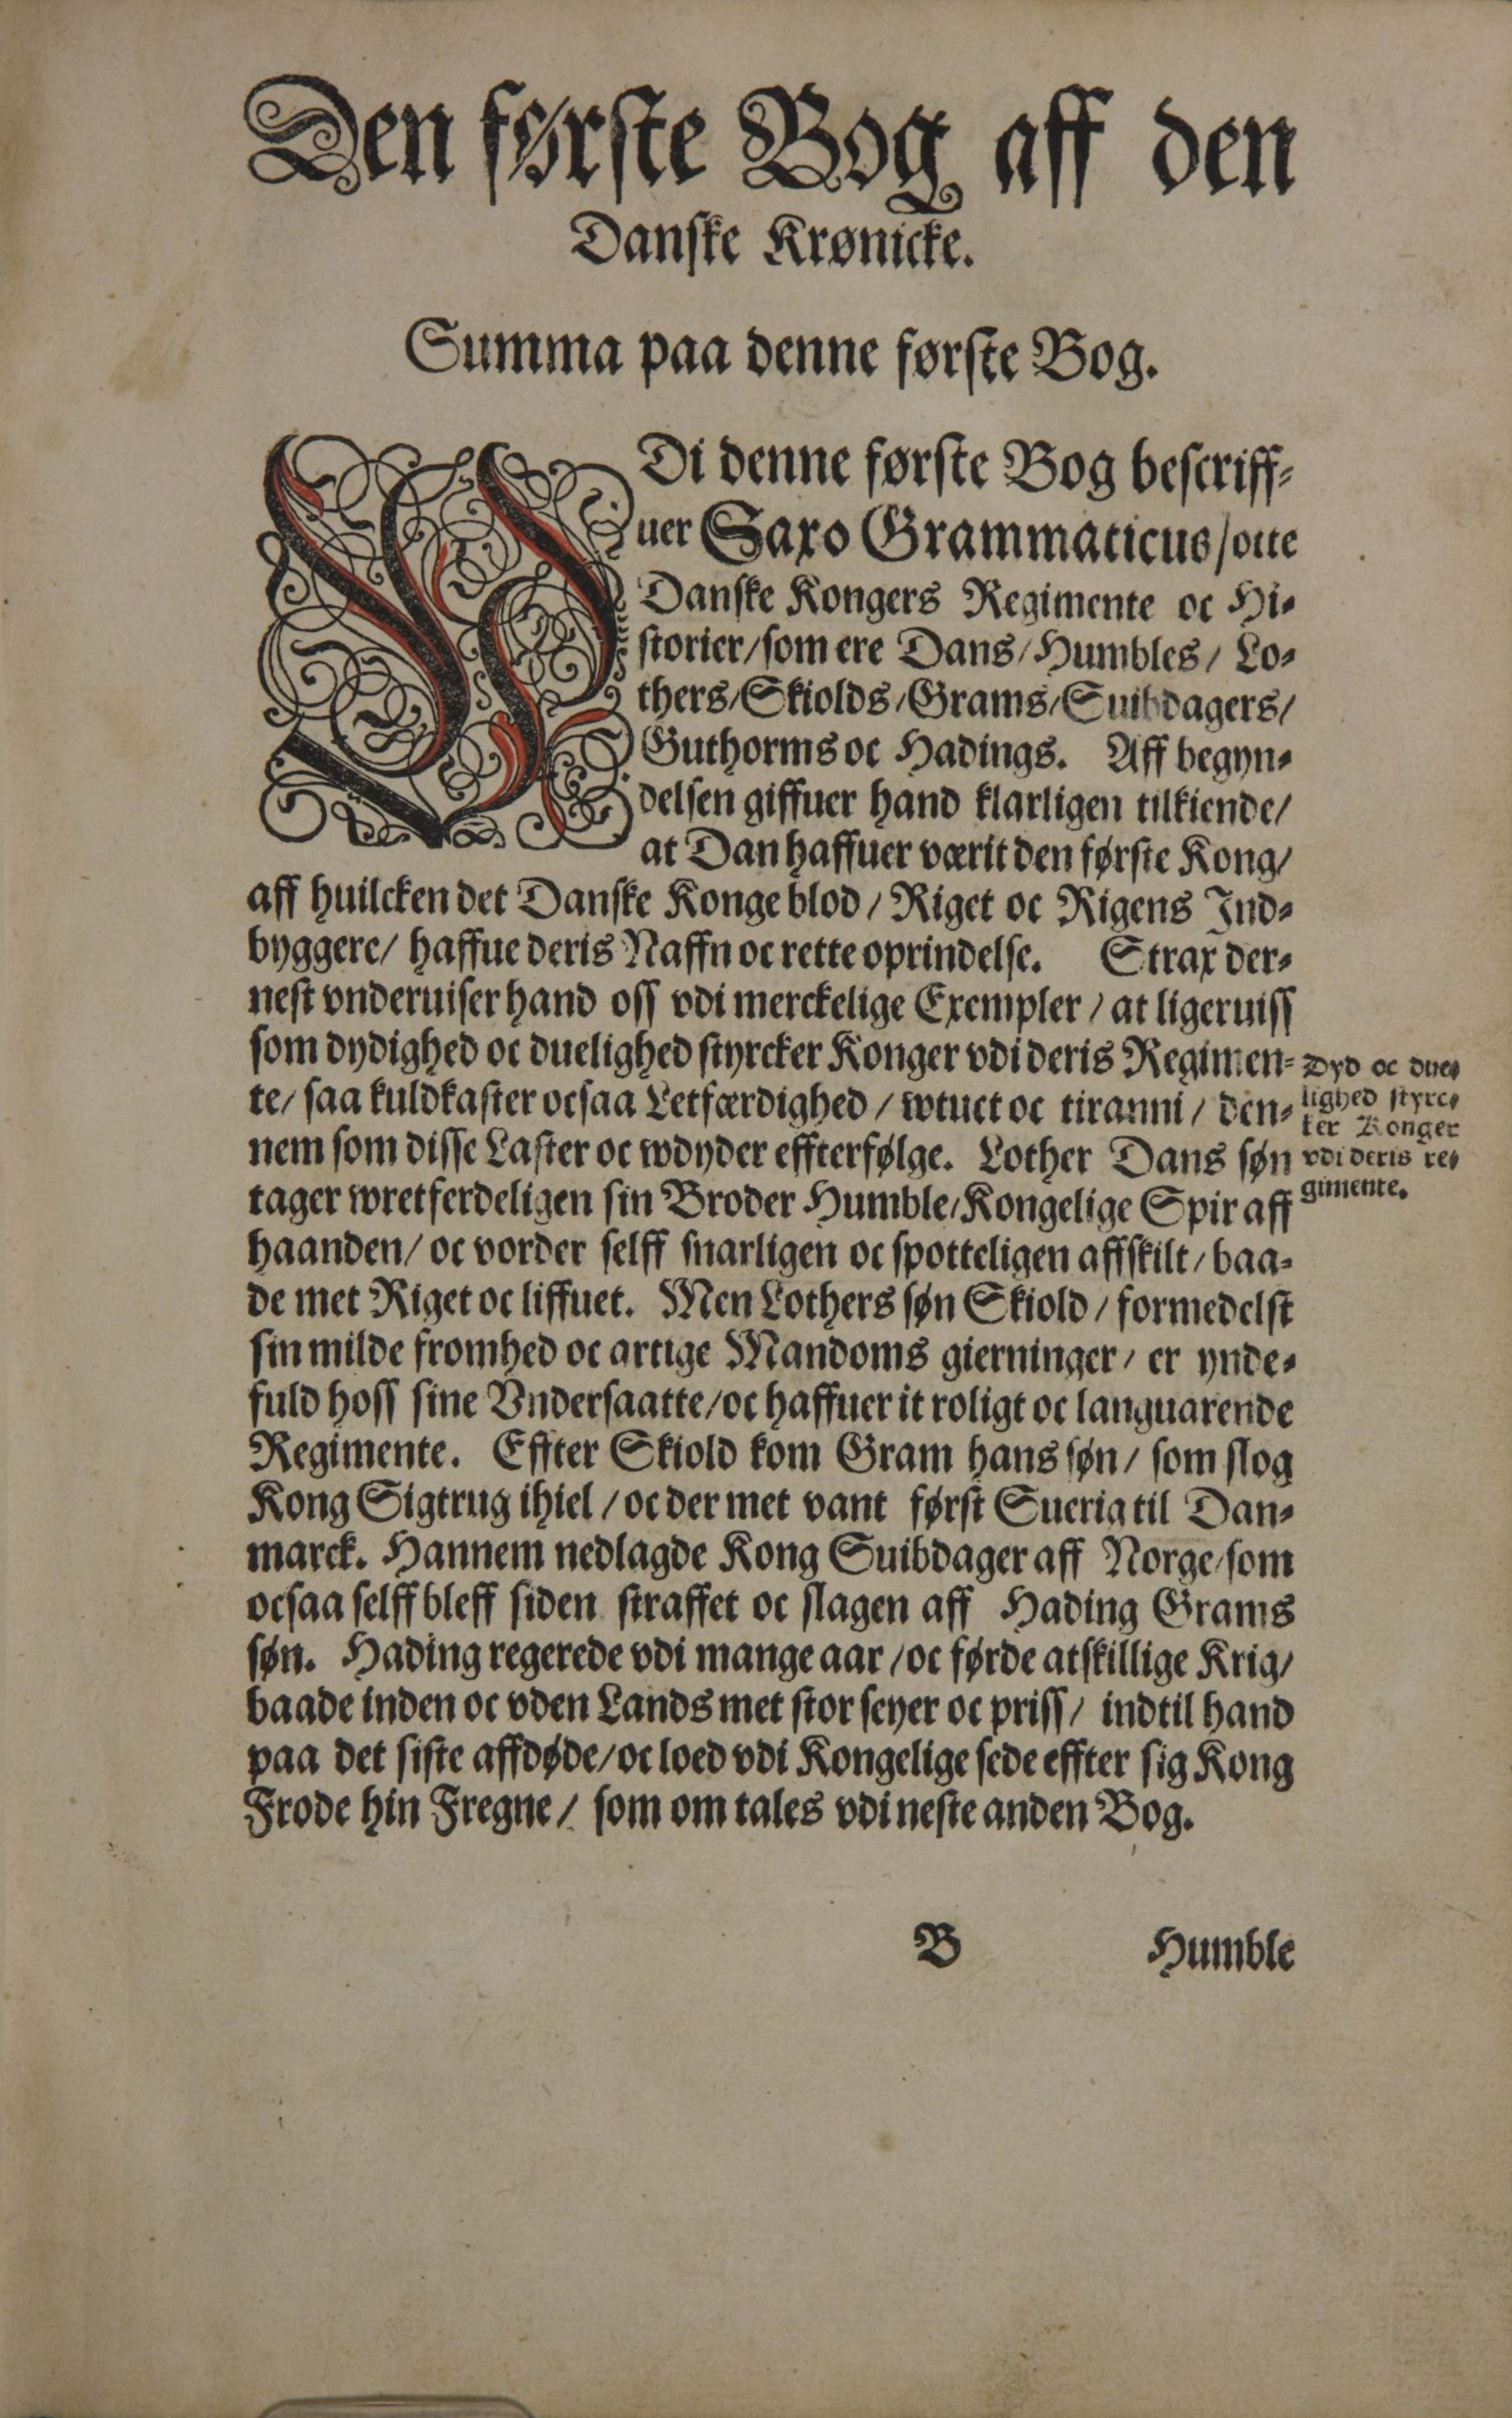 Den første Bog aff den
Danske Krønicke.
Summa paa denne første Bog.
VDi denne første Bog bescriff-
uer Saxo Grammaticus/ otte
Danske Kongers Regimente oc Hi-
storier/ som ere Dans/ Humbles/ Lo-
thers/ Skiolds/ Grams/ Suibdagers/
Guthorms oc Hadings. Aff begyn-
delsen giffuer hand klarligen tilkiende/
at Dan haffuer værit den første Kong/
aff huilcken det Danske Konge blod/ Riget oc Rigens Ind-
byggere/ haffue deris Naffn oc rette oprindelse. Strax der-
nest vnderuiser hand oss vdi merckelige Exempler/ at ligeruiss
som dydighed oc duelighed styrcker Konger vdi deris Regimen-
te/ saa kuldkaster ocsaa Letfærdighed/ wtuct oc tiranni/ den-
nem som disse Laster oc wdyder effterfølge. Lother Dans søn
tager wretferdeligen sin Broder Humble/ Kongelige Spir aff
haanden/ oc vorder selff snarligen oc spotteligen affskilt/ baa-
de met Riget oc liffuet. Men Lothers søn Skiold/ formedelst
sin milde fromhed oc artige Mandoms gierninger/ er ynde-
fuld hoss sine Vndersaatte/ oc haffuer it roligt oc languarende
Regimente. Effter Skiold kom Gram hans søn/ som slog
Kong Sigtrug ihiel/ oc der met vant først Suerig til Dan-
marck. Hannem nedlagde Kong Suibdager aff Norge/ som
ocsaa selff bleff siden straffet oc slagen aff Hading Grams
søn. Hading regerede vdi mange aar/ oc førde atskillige Krig/
baade inden oc vden Lands met stor seyer oc priss/ indtil hand
paa det siste affdøde/ oc loed vdi Kongelige sede effter sig Kong
Frode hin Fregne/ som om tales vdi neste anden Bog.
Dyd oc due-
lighed styrc-
ker Konger
vdi deris re-
gimente.
B
Humble